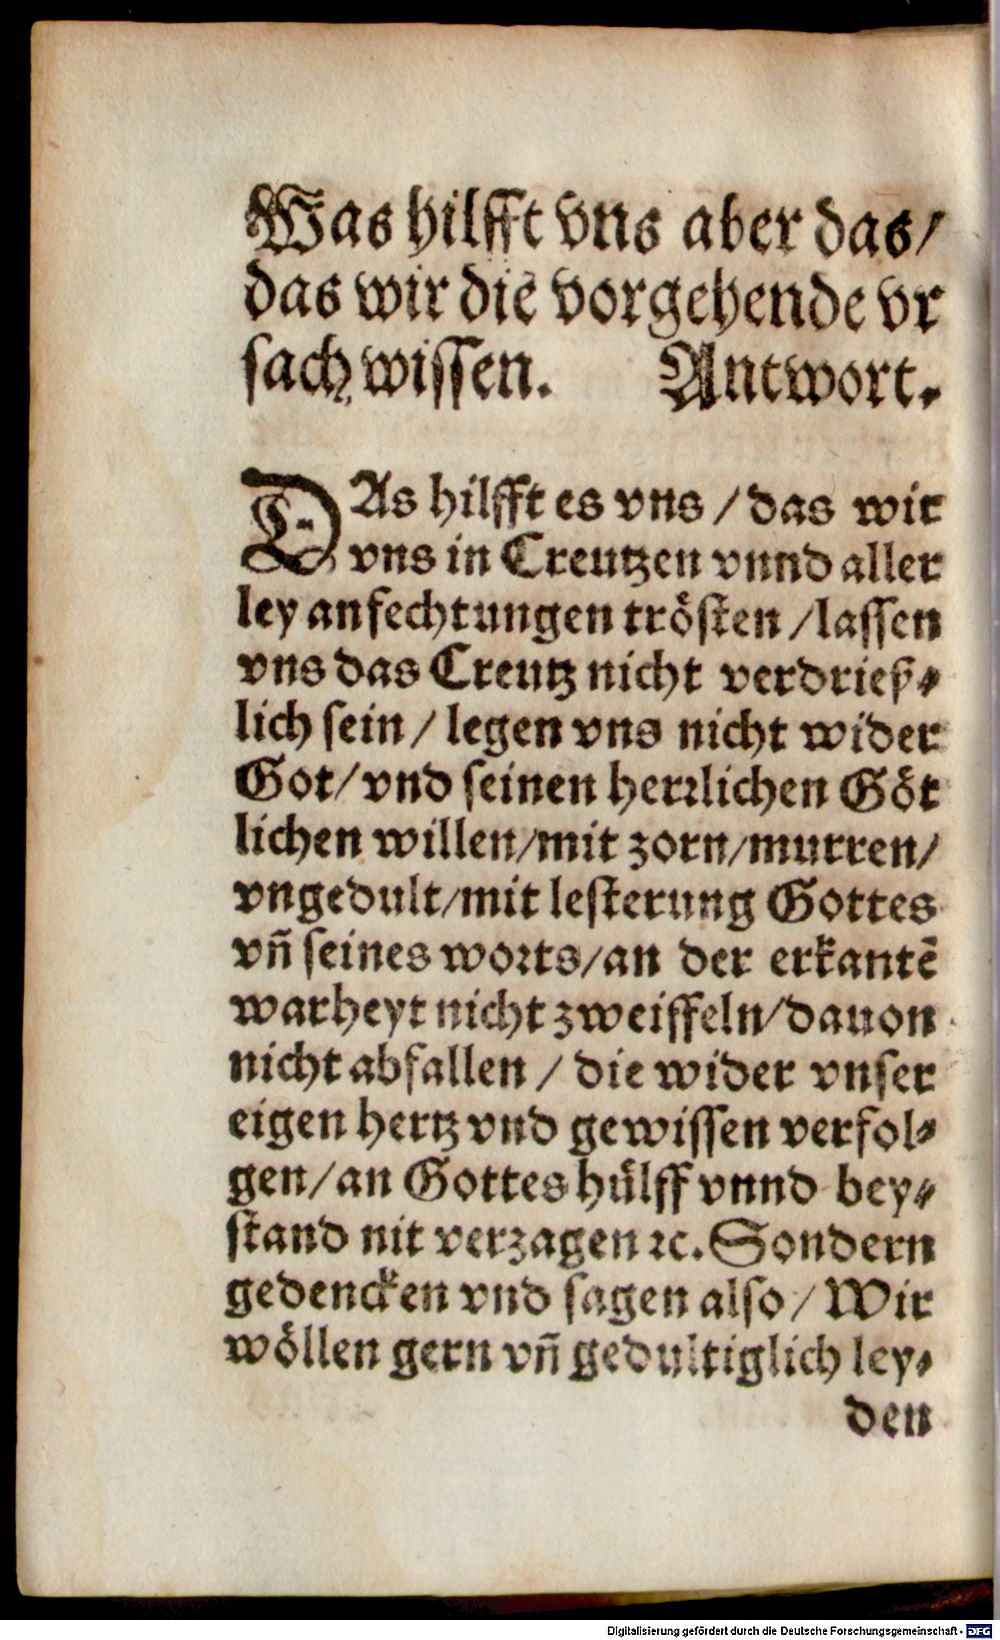 Was hilfft vns aber das/
das wir die vorgehende vr
sach wissen. Antwort.
DAs hilfft es vns / das wir
vns in Creutzen vnnd aller
ley anfechtungen trösten / lassen
vns das Creutz nicht verdrieß⸗
lich sein / legen vns nicht wider
Got / vnd seinen herrlichen Göt
lichen willen/mit zorn/murren/
vngedult/mit lesterung Gottes
vñ seines worts/an der erkantē
warheyt nicht zweiffeln/dauon
nicht abfallen / die wider vnser
eigen hertz vnd gewissen verfol⸗
gen/an Gottes hülff vnnd bey⸗
stand nit verzagen ꝛc. Sondern
gedencken vnd sagen also / Wir
wöllen gern vñ gedultiglich ley⸗
den
Digitalisierung gefördert durch die Deutsche Forschungsgemeinschaft - DFG